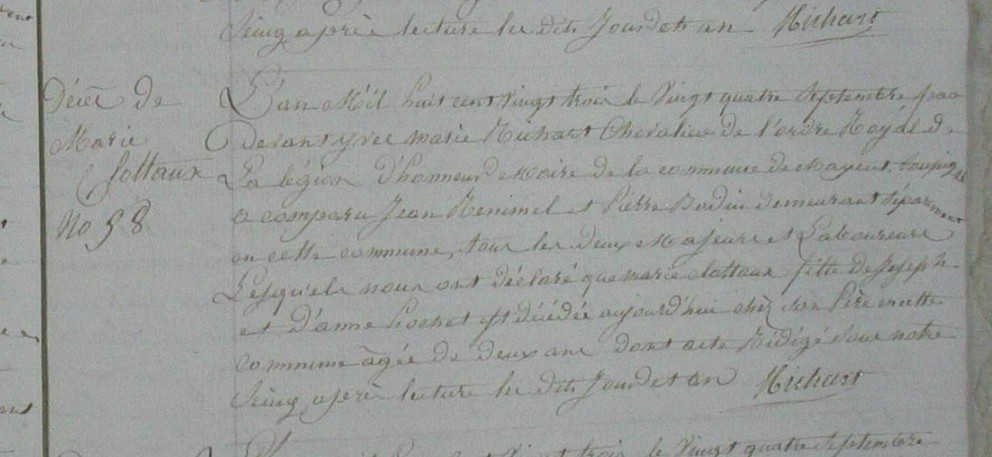 Seing après lecture les dits Jour et an Richart
Décès de
Marie
Lottaux
No 98
L'an Mil huit cent Vingt trois le Vingt quatre Septembre par
Devant yves marie Richart Chevalier de l'ordre Royal d
La légion D'honneur Maire de la commune de
a comparu Jean et Pierre Bodin demeurant séparement
en cette commune, tous les deux Majeurs et Laboureurs
Lesquels nous ont déclaré que marie Lottaux fille de Joseph
et D'anne est décédée aujourd'hui chez son Père en cette
commune âgée de deux ans dont acte Rédigé sous notre
Seing après lecture les dits Jour et an Richart
Vingt trois le Vingt quatre Septembre